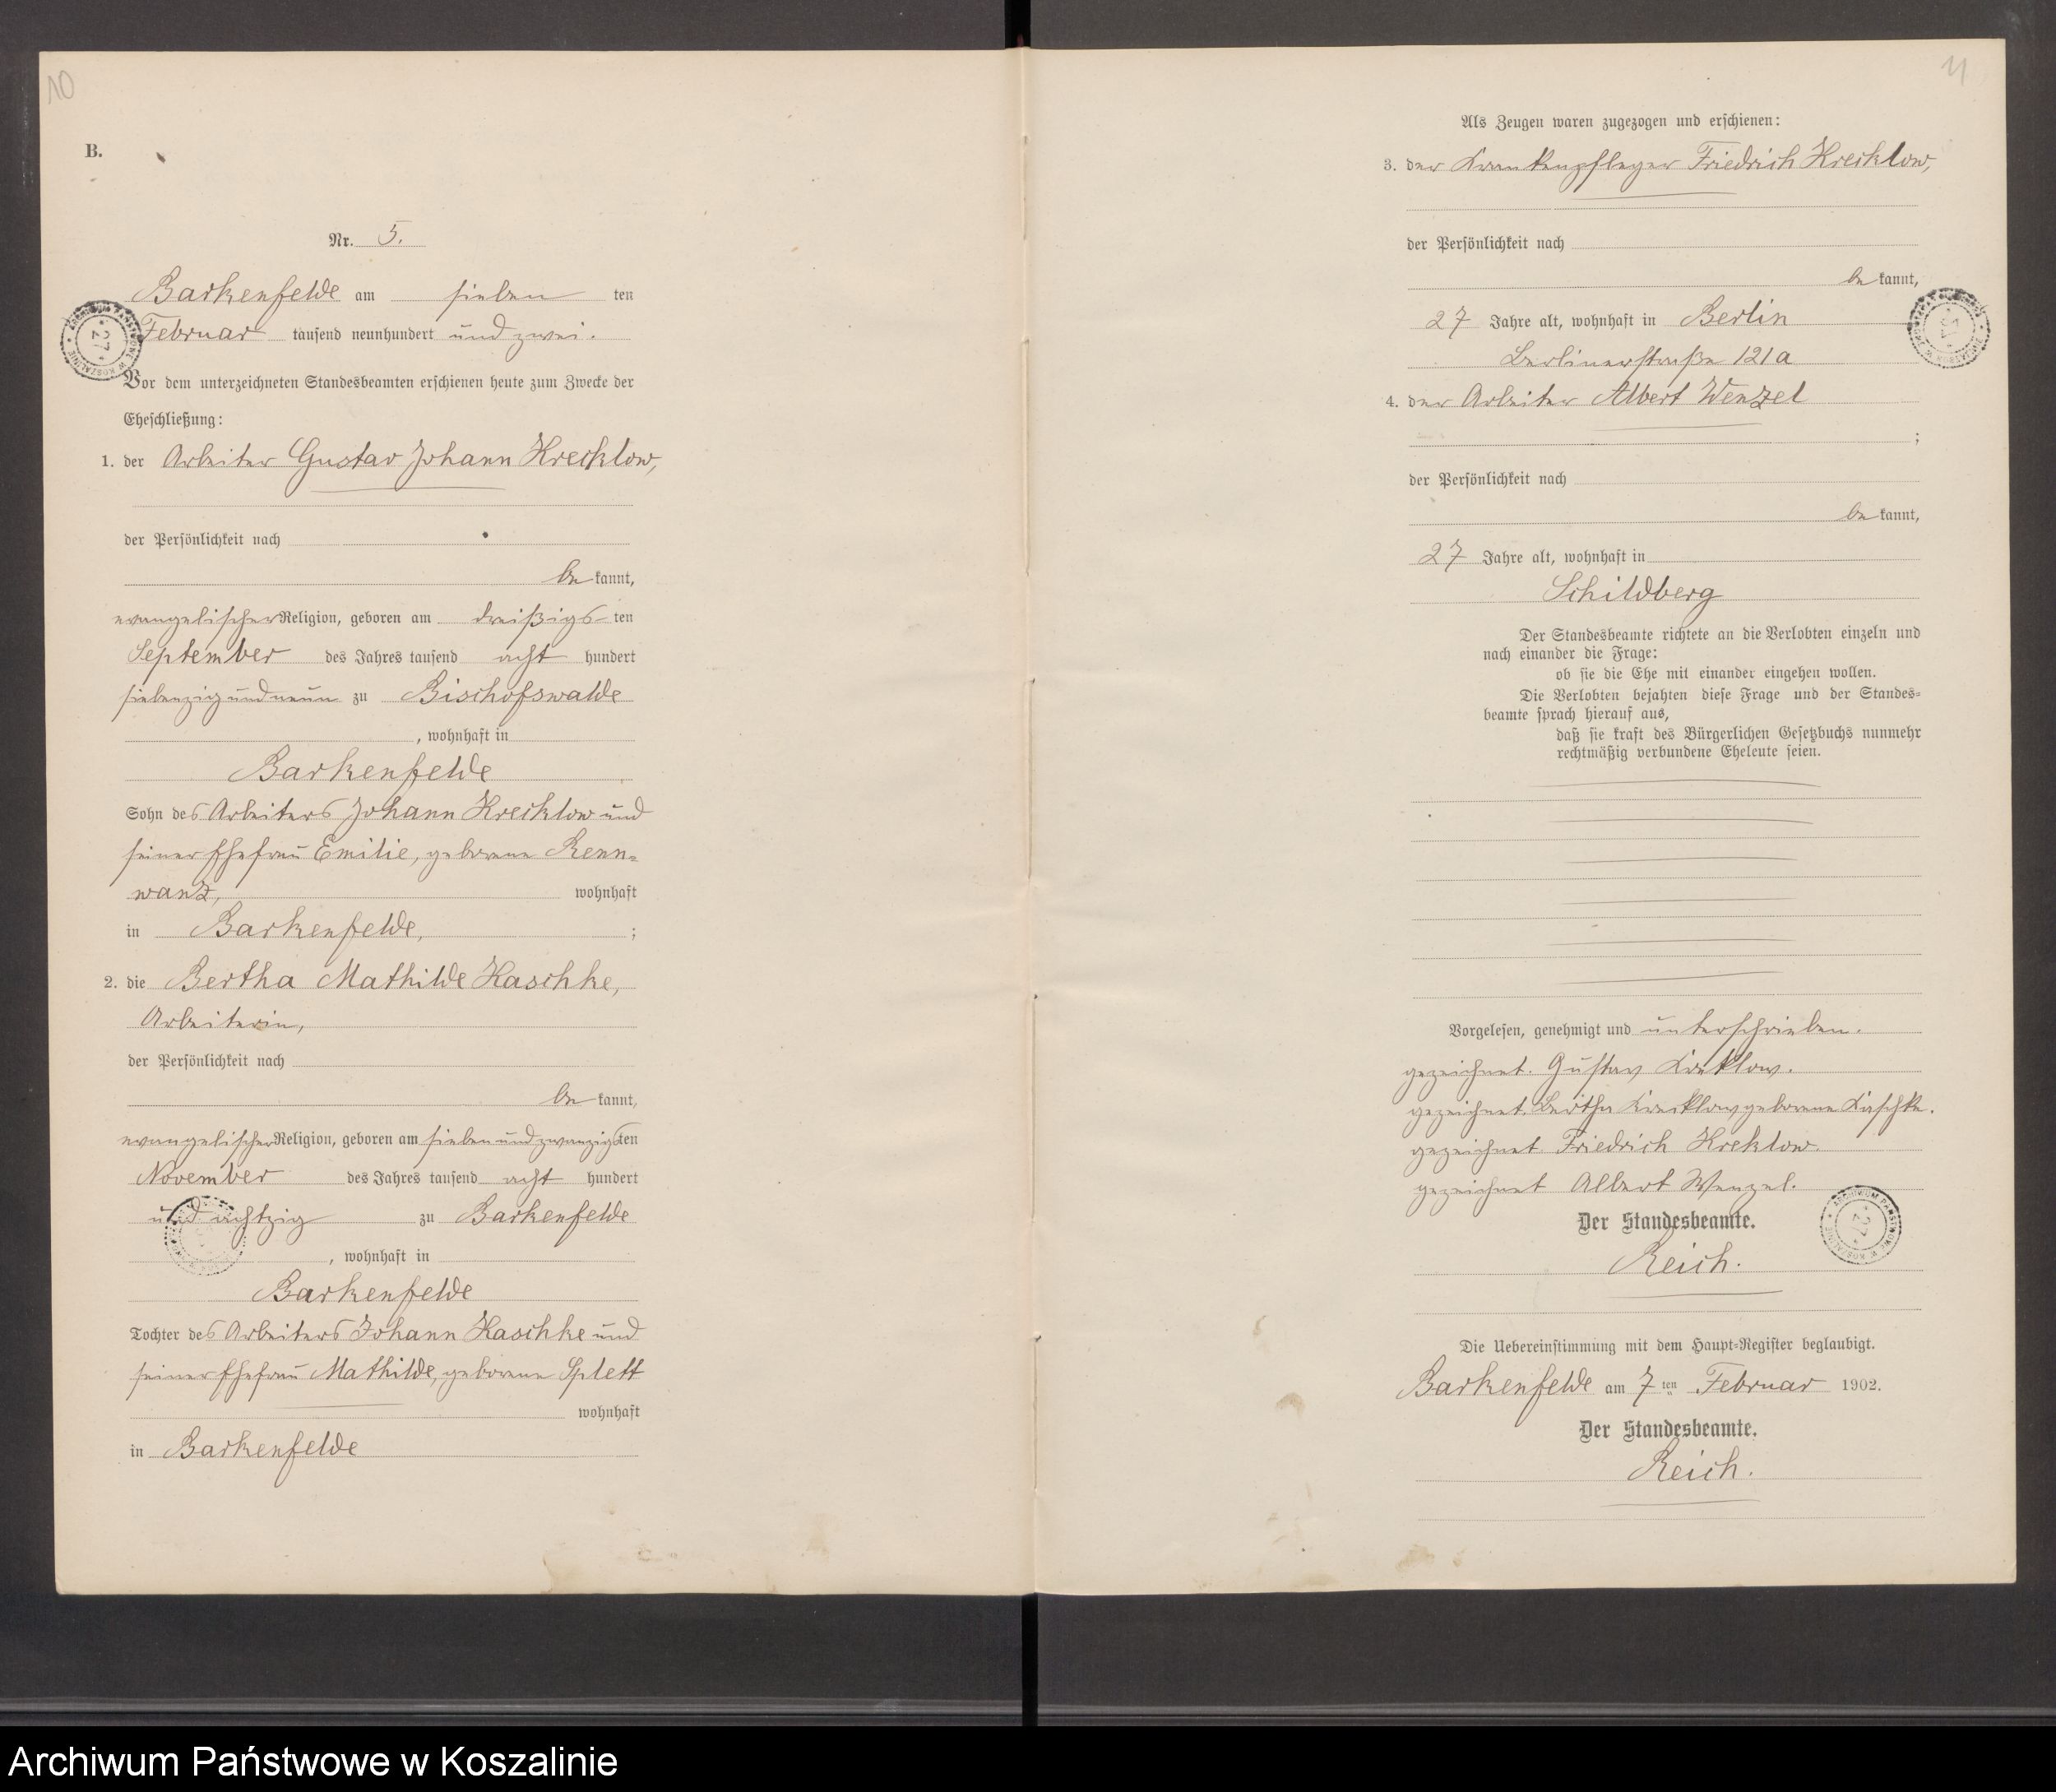 10
B.
Nr. 5.
Barkenfelde am sieben ten
Februar tausend neunhundert und zwei.
Vor dem unterzeichneten Standesbeamten erschienen heute zum Zwecke der
Eheschließung:
1. der Arbeiter Gustav Johann Krecklow,
der Persönlichkeit nach
be kannt,
evangelischer Religion, geboren am dreißigs ten
September des Jahres tausend acht hundert
siebenzig und neun zu Bischofswalde
, wohnhaft in
Barkenfelde
Sohn des Arbeiters Johann Krecklow und
seiner Ehefrau Emilie, geborene Renn-
wanz, wohnhaft
in Barkenfelde, ;
2. die Bertha Mathilde Kaschke,
Arbeiterin,
der Persönlichkeit nach
be kannt,
evangelischer Religion, geboren am sieben und zwanzigs ten
November des Jahres tausend acht hundert
und achtzig zu Barkenfelde
, wohnhaft in
Barkenfelde
Tochter des Arbeiters Johann Kaschke und
seiner Ehefrau Mathilde, geborene Splett
wohnhaft
in Barkenfelde
ARCHIWUM PAŃSTWOWE W KOSZALINIE * 27 *
11
Als Zeugen waren zugezogen und erschienen:
3. der Krankenpfleger Friedrich Krecklow,
der Persönlichkeit nach
be kannt,
27 Jahre alt, wohnhaft in Berlin
Berlinerstraße 121a
4. der Arbeiter Albert Wenzel
;
der Persönlichkeit nach
be kannt,
27 Jahre alt, wohnhaft in
Schildberg
Der Standesbeamte richtete an die Verlobten einzeln und
nach einander die Frage:
ob sie die Ehe mit einander eingehen wollen.
Die Verlobten bejahten diese Frage und der Standes-
beamte sprach hierauf aus,
daß sie kraft des Bürgerlichen Gesetzbuchs nunmehr
rechtmäßig verbundene Eheleute seien.
Vorgelesen, genehmigt und unterschrieben.
gezeichnet. Gustav Kreklow.
gezeichnet. Bertha Krecklow geborene Kaschke.
gezeichnet Friedrich Kreklow.
gezeichnet Albert Wenzel.
Der Standesbeamte.
Reich.
ARCHIWUM PAŃSTWOWE W KOSZALINIE * 27 *
Die Uebereinstimmung mit dem Haupt-Register beglaubigt.
Barkenfelde am 7 ten Februar 1902.
Der Standesbeamte.
Reich.
Archiwum Państwowe w Koszalinie